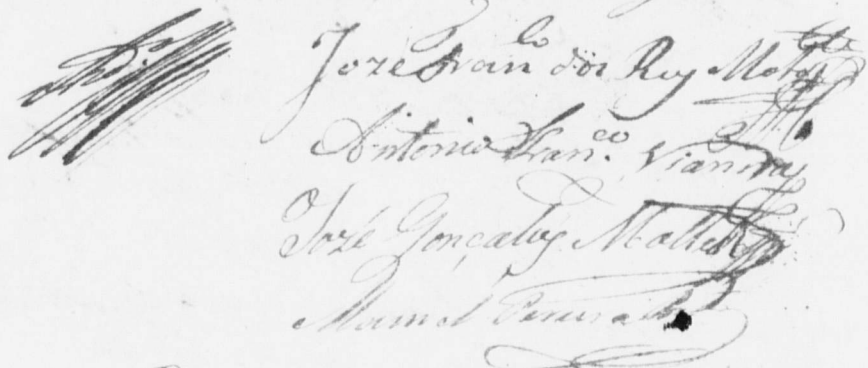 Jozé Fran.co dos Reys Mota
Antonio Fran.co Vianna
Jozé Gonçalvz
Manoel Pereira